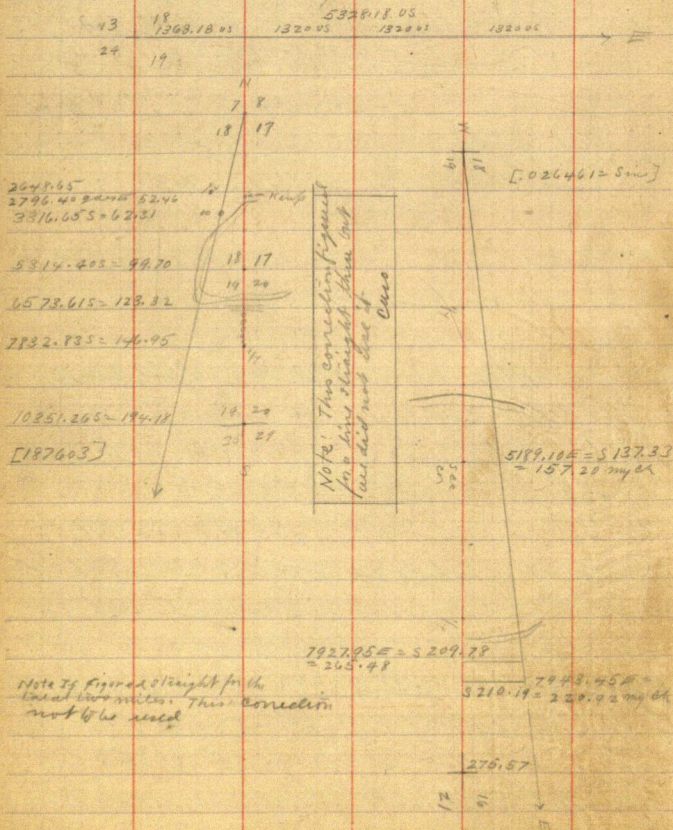 5328.18 US
13 18 1368.18 US 1320 US 1320 US 1320 US E
24 19
N
7 8
18 17
18
19
[.026461 = Sine]
2648.65
2796.40 52.46
3316.65 S = 62.31
5314.40 S = 99.70
18 17
19 20
6573.61 S = 123.32
7832.83 S = 146.95
1/4
10351.26 S = 194.18
19 20
29
[187603]
S
Note: This correction figured
for a line straight thru but
we did not use it
5189.10 E = S 137.33
= 157.20 my ch
7927.95 E = S 209.78
= 265.48
7943.45 E =
S 210.19 = 220.92 my ch
Note If Figured straight for the
two miles. This correction
not to be used
275.57
21 16
E